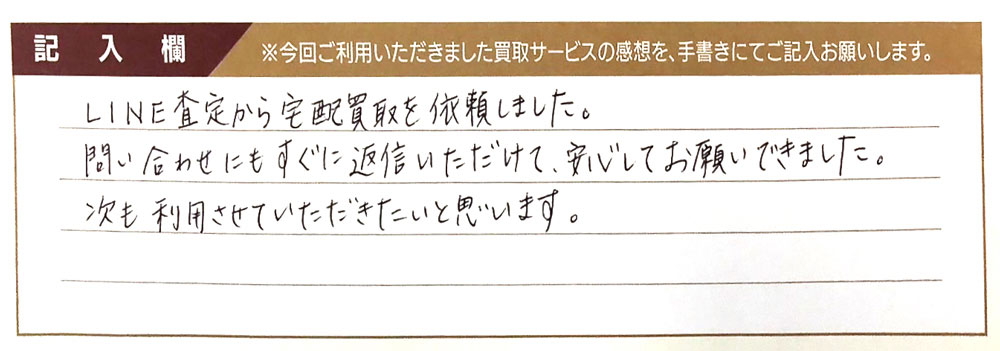 記入欄 ※今回ご利用いただきました買取サービスの感想を、手書きにてご記入お願いします。
LINE査定から宅配買取を依頼しました。
問い合わせにもすぐに返信いただけて、安心してお願いできました。
次も利用させていただきたいと思います。